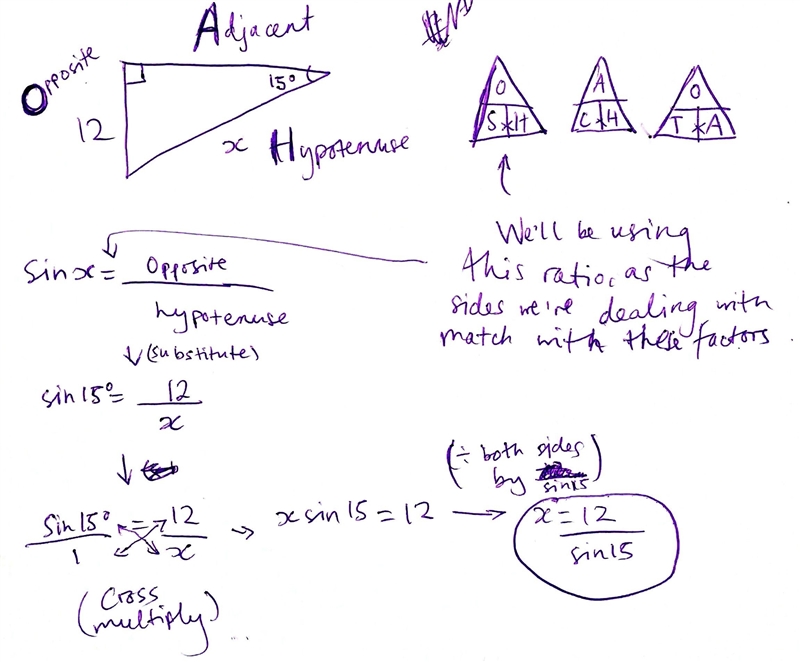 Adjacent
Opposite
15°
12
x Hypotenuse
O
S * H
A
C * H
O
T * A
We'll be using
this ratio, as the
sides we're dealing with
match with these factors
Sin x = Opposite
hypotenuse
↓ (substitute)
sin 15° = 12
x
↓
Sin 15° = 12
1 x
(Cross
multiply)
→ x sin 15 = 12 →
(÷ both sides
by sin 15)
x = 12
sin 15